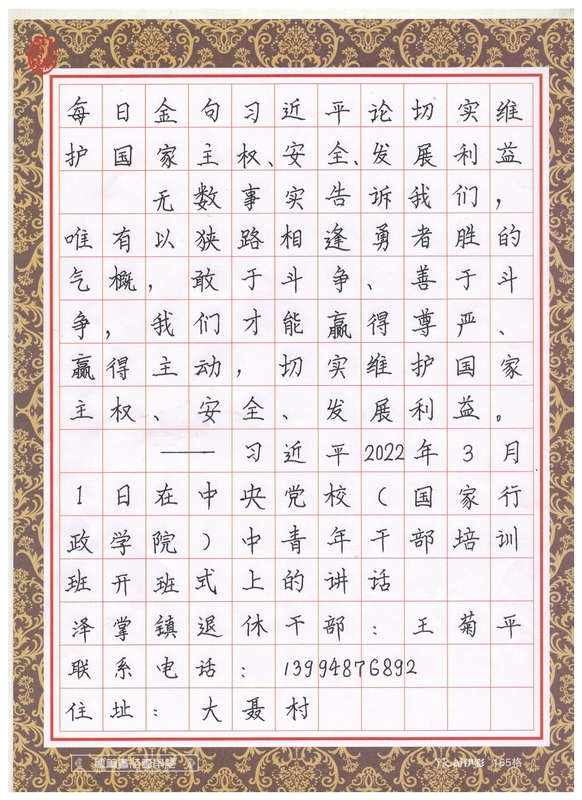 每日金句习近平论切实维
护国家主权、安全、发展利益
无数事实告诉我们，
唯有以狭路相逢勇者胜的
气概，敢于斗争、善于斗
争，我们才能赢得尊严、
赢得主动，切实维护国家
主权、安全、发展利益。
——习近平2022年3月
1日在中央党校（国家行
政学院）中青年干部培训
班开班式上的讲话
泽掌镇退休干部：王菊平
联系电话：13994876892
住址：大聂村
165格